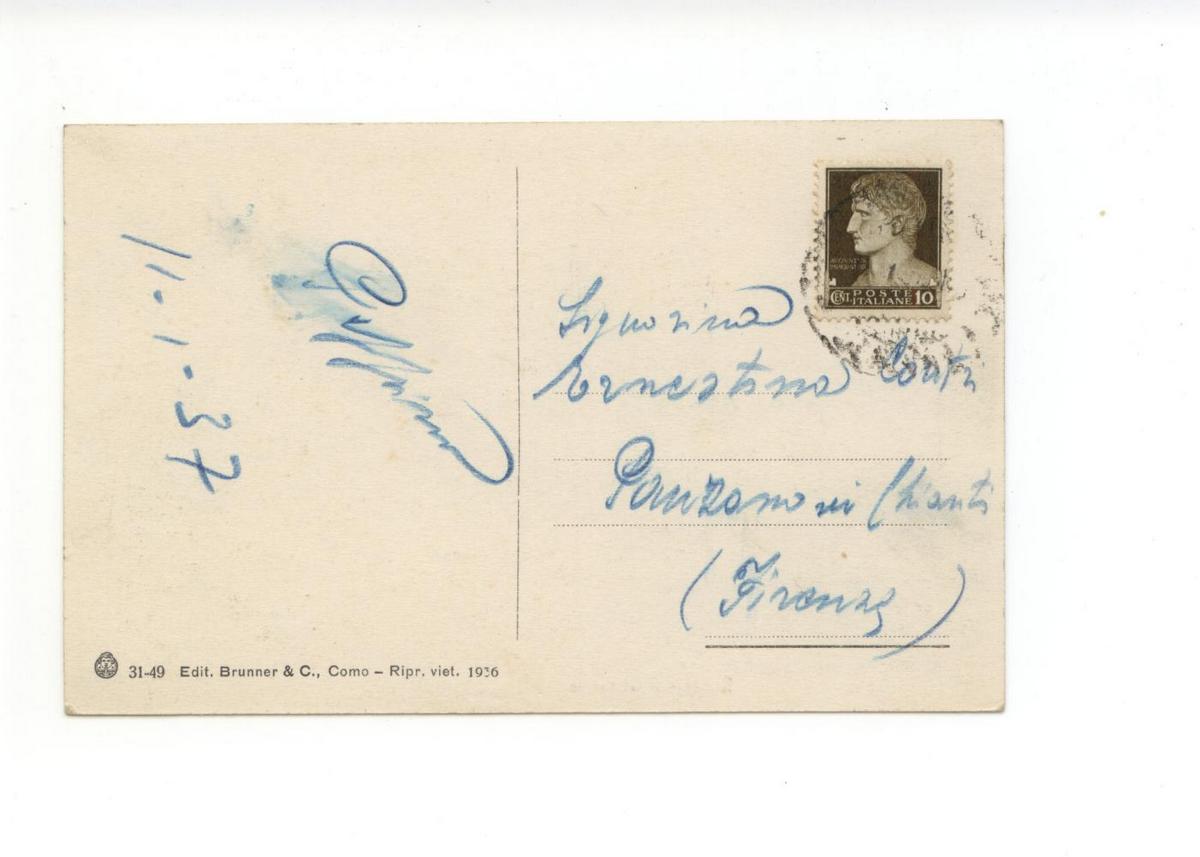 11-1-37
Signorina
Ernestina Conti
Panzano in Chianti
(Firenze)
CENT. POSTE ITALIANE 10
31-49 Edit. Brunner & C., Como – Ripr. viet. 1936